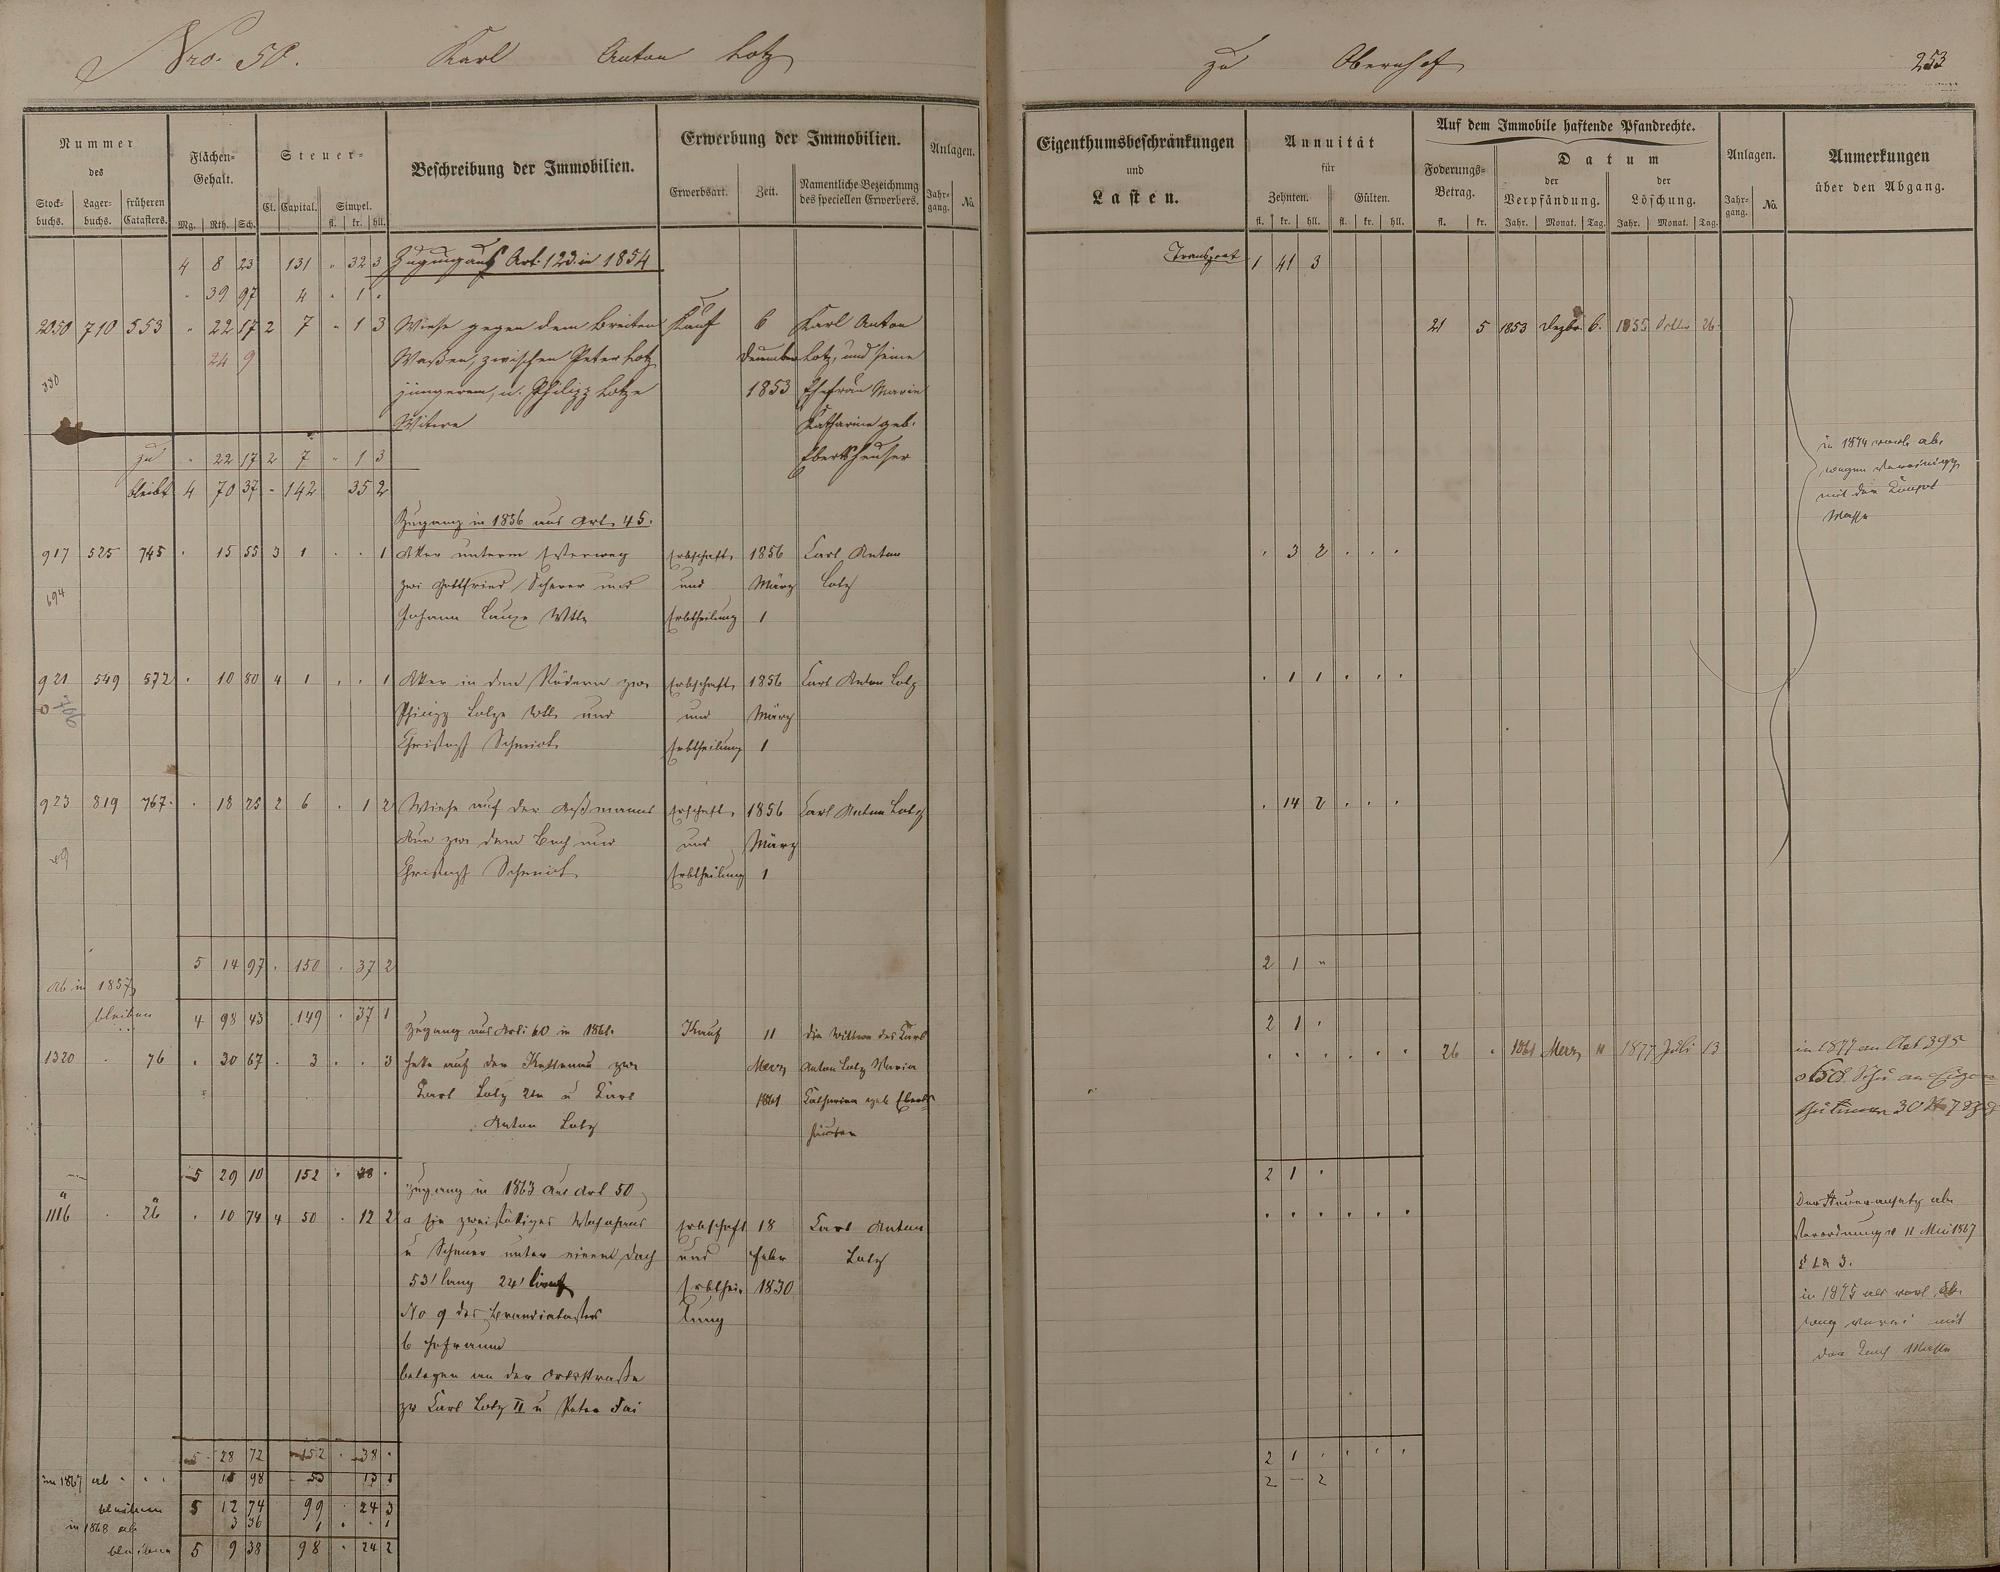 Nro. 50. Karl Anton Lotz
zu Obernhof 253
Nummer
des
Stock-
buchs.
Lager-
buchs.
früheren
Catasters.
Flächen-
Gehalt.
Mg. Rth. Sch.
Steuer-
Cl. Capital. Simpel.
fl. kr. hll.
Beschreibung der Immobilien.
Erwerbung der Immobilien.
Erwerbsart. Zeit. Namentliche Bezeichnung
des speciellen Erwerbers.
Anlagen.
Jahr-
gang. No.
4 8 23 131 " 32 3 Zugang aus Art. 123 in 1854
" 39 97 4 " 1 "
2050 710 553 " 22 17 2 7 " 1 3 Wiese gegen dem breiten Kauf 6 Karl Anton
24 9 Waßen, zwischen Peter Lotz December Lotz, und seine
330 jüngerem, u. Philipp Lotze 1853 Ehefrau Marie
Witwe Katharine geb.
zu " 22 17 2 7 " 1 3 Ebertshäuser
bleibt 4 70 37 - 142 35 2
Zugang in 1856 aus Art. 45.
917 525 745 . 15 55 3 1 . . 1 Aker unterm Esterweg Erbschaft 1856 Carl Anton
694 zwi Gottfried Scherer und und März Lotz
Johann Lauxe Wtb Erbtheilung 1
921 549 572 . 10 80 4 1 . . 1 Aker in den Rödern zw. Erbschaft 1856 Carl Anton Lotz
706 Philipp Lotze Wtb und und März
Christoph Schmidt Erbtheilung 1
923 819 767 . 18 25 2 6 . 1 2 Wiese auf der Aßmanns Erbschaft 1856 Carl Anton Lotz
49 Aue zw. dem Bach und und März
Christoph Schmidt Erbtheilung 1
5 14 97 . 150 . 37 2
ab in 1857
bleiben 4 98 43 149 . 37 1
Zugang aus Art: 60 in 1861. Kauf 11 die Wittwe des Karl
1320 . 76 . 30 67 . 3 . . 3 Hecke auf der Kettenau zw. Merz Anton Lotz Maria
Karl Lotz 2tr u Karl 1861 Katharina geb Eberts-
Anton Lotz häuser
5 29 10 152 . 38 .
Zugang in 1863 aus Art 50
a a
1116 . 26 . 10 74 4 50 . 12 2 a Ein zweistökiges Wohnhaus Erbschaft 18 Carl Anton
u Scheuer unter einem Dach und Febr Lotz
53' lang 24' breit Erbthei- 1830
No 9 des Brandcatasters lung
b Hofraum
belegen an der Ortsstraße
zw Carl Lotz II u Peter Fai
5 28 72 152 . 38 .
im 1867 ab . . . 15 98 - 53 13 1
bleiben 5 12 74 99 . 24 3
in 1868 ab 3 36 1 . . 1
bleiben 5 9 38 98 . 24 2
Eigenthumsbeschränkungen
und
Lasten.
Annuität
für
Zehnten. Gülten.
fl. kr. hll. fl. kr. hll.
Auf dem Immobile haftende Pfandrechte.
Foderungs-
Betrag.
fl. kr.
Datum
der
Verpfändung.
Jahr. Monat. Tag.
der
Löschung.
Jahr. Monat. Tag.
Anlagen.
Jahr-
gang. No.
Anmerkungen
über den Abgang.
Transport 1 41 3
21 5 1853 Dezbr. 6. 1855 26.
in 1874 ab
wegen Vereinigg
mit der
Masse
. 3 2 . . .
. 1 1 . . .
. 14 2 . . .
2 1 "
2 1 .
. . . . . . 26 . 1861 Merz 11 1877 Juli 13 in 1877 an Art 395
2 1 .
. . . . . .
Der Steueransatz ab
Verordnung v 11 Mai 1867
§ 1 a 3.
in 1875 ab
mit
der Masse
2 1 . . . .
2 - 2